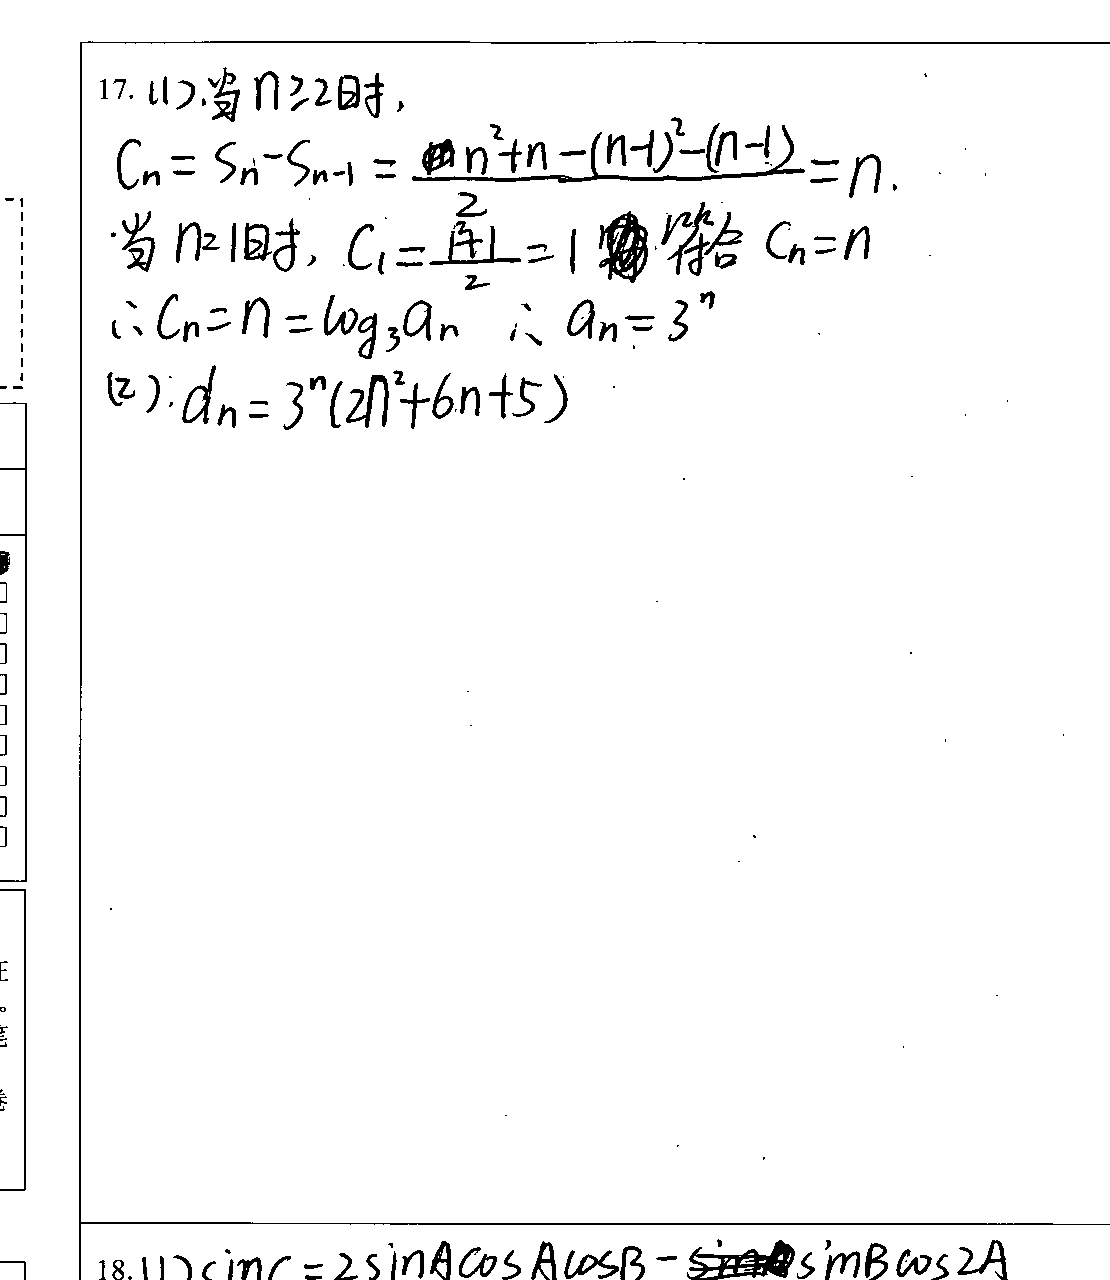 17. (1).当n≥2时,
Cn = Sn - Sn-1 = (n²+n-(n-1)²-(n-1))/2 = n.
当n=1时, C1 = (1²+1)/2 = 1 符合 Cn=n
∴Cn=n=log₃an ∴ an=3ⁿ
(2). dn=3ⁿ(2n²+6n+5)
18. (1) sinC=2sinAcosAcosB-sinBcos2A